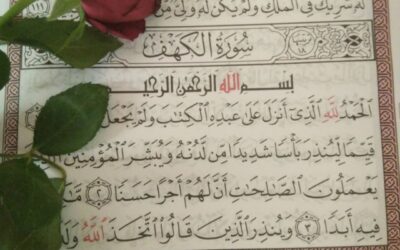 لَّهُۥ شَرِيكٌ فِى ٱلْمُلْكِ وَلَمْ يَكُن لَّهُۥ وَلِىٌّ مِّنَ
سُورَةُ الكَهْفِ
١٨
بِسْمِ ٱللَّهِ ٱلرَّحْمَٰنِ ٱلرَّحِيمِ
ٱلْحَمْدُ لِلَّهِ ٱلَّذِىٓ أَنزَلَ عَلَىٰ عَبْدِهِ ٱلْكِتَٰبَ وَلَمْ يَجْعَل
قَيِّمًا لِّيُنذِرَ بَأْسًا شَدِيدًا مِّن لَّدُنْهُ وَيُبَشِّرَ ٱلْمُؤْمِنِينَ
يَعْمَلُونَ ٱلصَّٰلِحَٰتِ أَنَّ لَهُمْ أَجْرًا حَسَنًا ٢
فِيهِ أَبَدًا ٣ وَيُنذِرَ ٱلَّذِينَ قَالُوا۟ ٱتَّخَذَ ٱللَّهُ